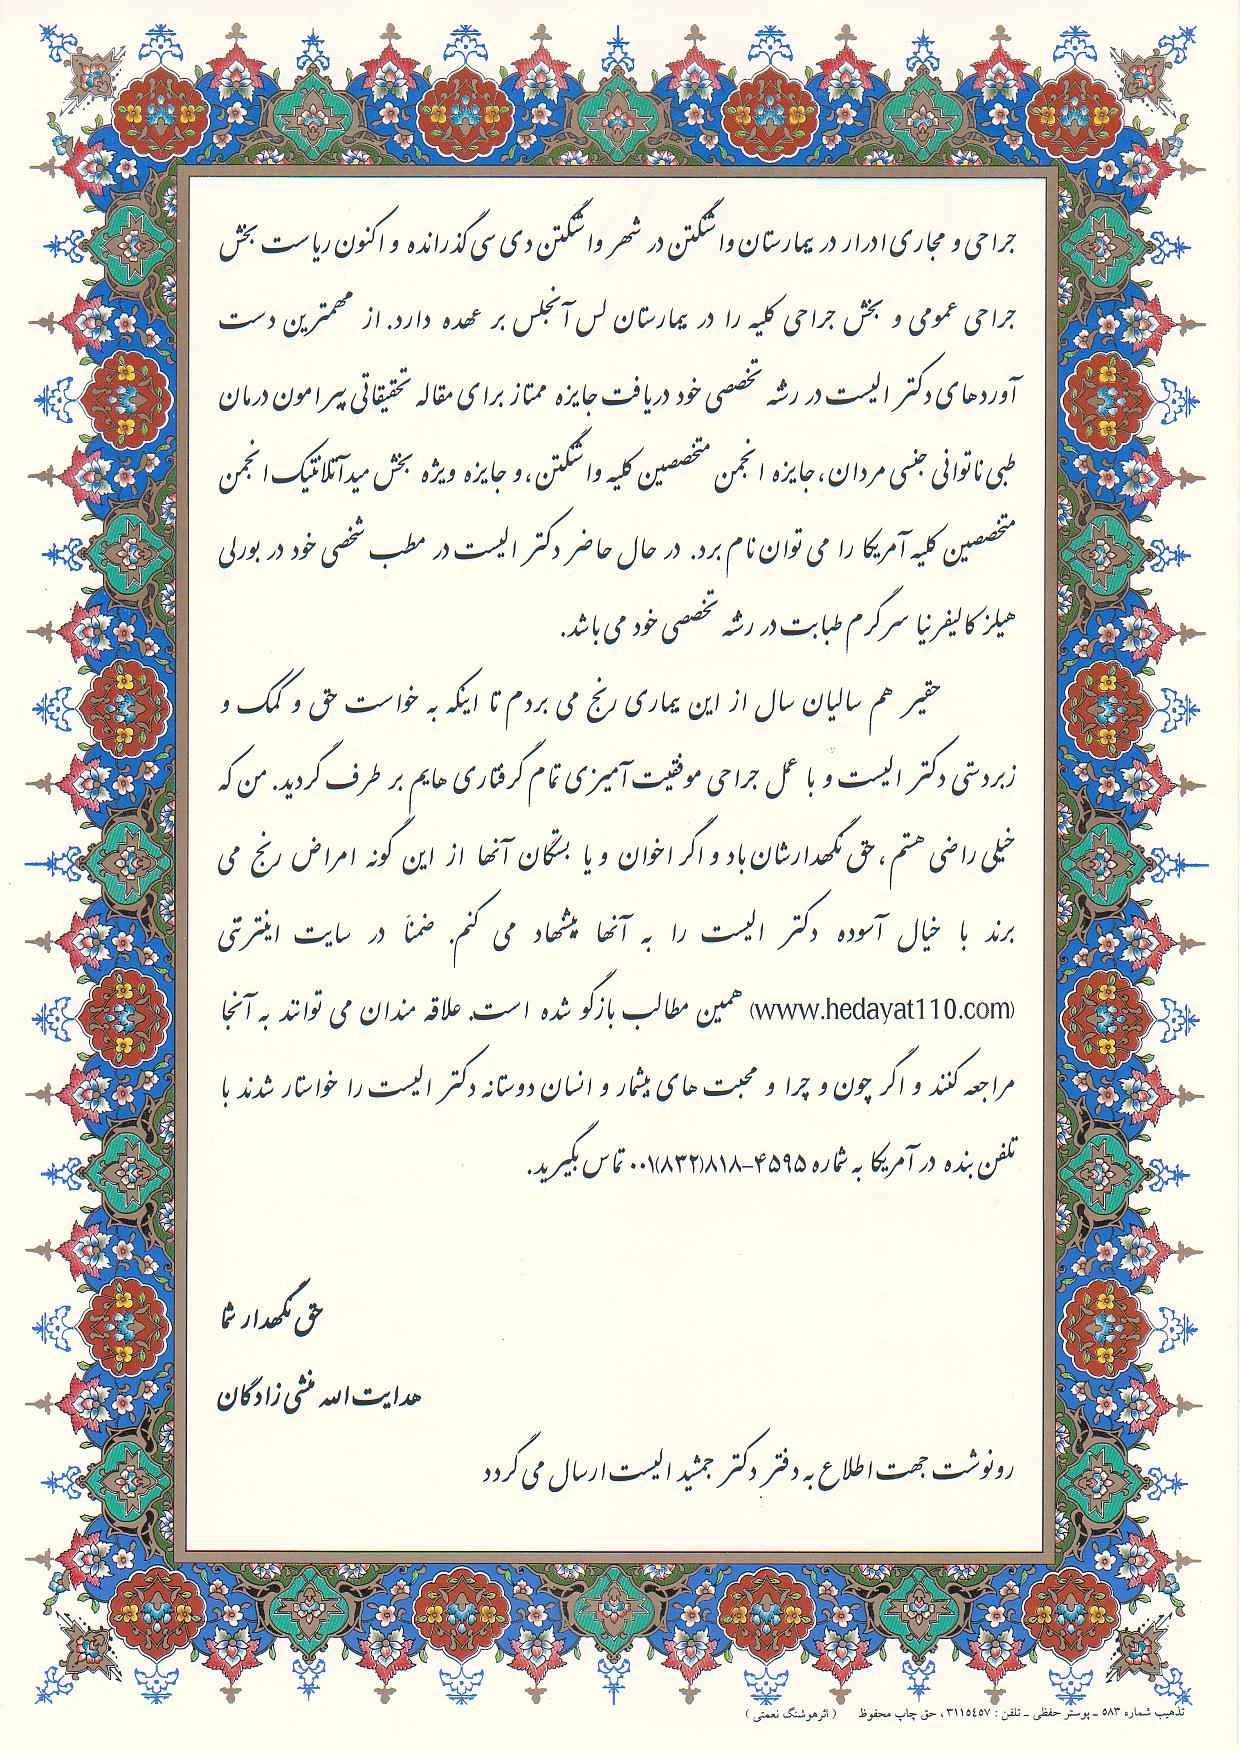 جراحی و مجاری ادرار در بیمارستان واشنگتن در شهر واشنگتن دی سی گذرانده و اکنون ریاست بخش
جراحی عمومی و بخش جراحی کلیه را در بیمارستان لس آنجلس بر عهده دارد. از مهمترین دست
آوردهای دکتر الیست در رشته تخصصی خود دریافت جایزه ممتاز برای مقاله تحقیقاتی پیرامون درمان
طبی ناتوانی جنسی مردان، جایزه انجمن متخصصین کلیه واشنگتن، و جایزه ویژه بخش میدآتلانتیک انجمن
متخصصین کلیه آمریکا را می توان نام برد. در حال حاضر دکتر الیست در مطب شخصی خود در بورلی
هیلز کالیفرنیا سرگرم طبابت در رشته تخصصی خود می باشد.
حقیر هم سالیان سال از این بیماری رنج می بردم تا اینکه به خواست حق و کمک و
زبردستی دکتر الیست و با عمل جراحی موفقیت آمیزی تمام گرفتاری هایم بر طرف گردید. من که
خیلی راضی هستم، حق نگهدارشان باد و اگر اخوان و یا بستگان آنها از این گونه امراض رنج می
برند با خیال آسوده دکتر الیست را به آنها پیشنهاد می کنم. ضمناً در سایت اینترنتی
(www.hedayat110.com) همین مطالب بازگو شده است. علاقه مندان می توانند به آنجا
مراجعه کنند و اگر چون و چرا و محبت های بیشمار و انسان دوستانه دکتر الیست را خواستار شدند با
تلفن بنده در آمریکا به شماره ۴۵۹۵-۸۱۸(۸۳۲)۰۰۱ تماس بگیرید.
حق نگهدار شما
هدایت الله منشی زادگان
رونوشت جهت اطلاع به دفتر دکتر جمشید الیست ارسال می گردد
تذهیب شماره ۵۸۳ ـ پوستر حفظی ـ تلفن : ۳۱۱۵٤۵۷ ، حق چاپ محفوظ ( اثرهوشنگ نعمتی )